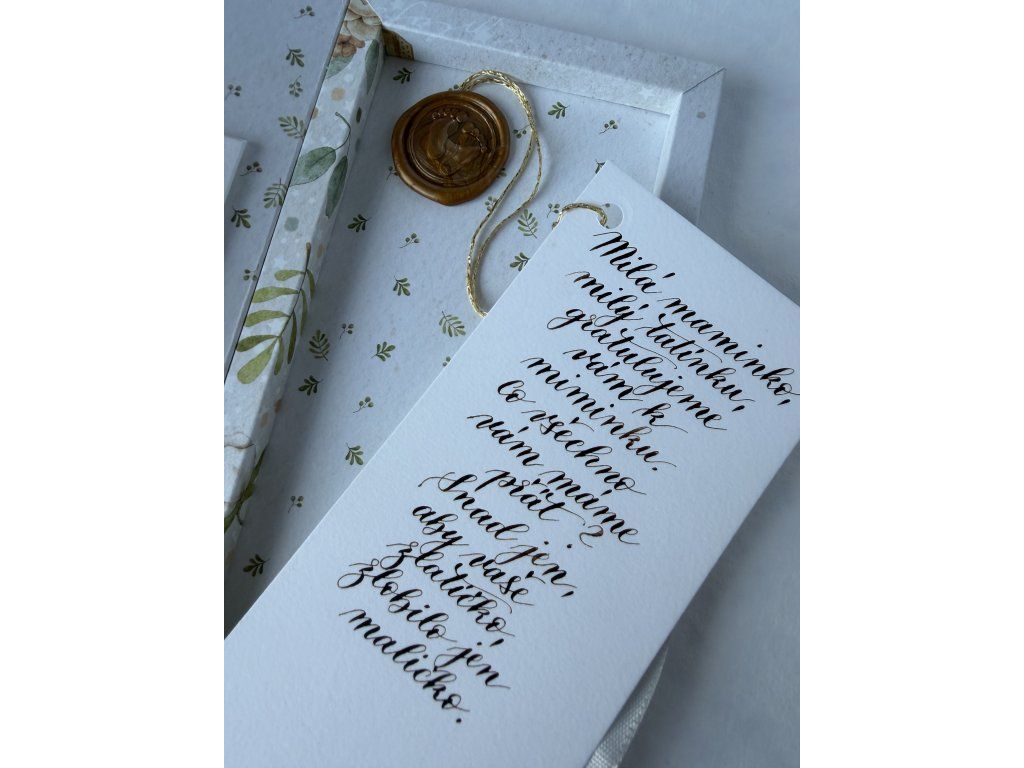 Milá maminko,
milý tatínku,
gratulujeme
vám k
miminku.
Co všechno
vám máme
přát?
Snad jen,
aby vaše
zlatíčko,
zlobilo jen
maličko.